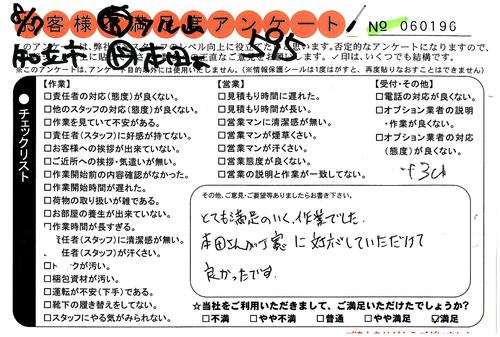 お客様満足度アンケート
№ 060196
595
※このアンケートは、アンケート目的以外には使用いたしません。(※情報保護シールは1度はがすと、再度貼りなおすことはできません)
チェックリスト
【作業】
□責任者の対応(態度)が良くない。
□他のスタッフの対応(態度)が良くない。
□作業を見ていて不安がある。
□責任者(スタッフ)に好感が持てない。
□お客様への挨拶が出来ていない。
□ご近所への挨拶・気遣いが無い。
□作業開始前の内容確認がなかった。
□作業開始時間が遅れた。
□荷物の取り扱いが雑である。
□お部屋の養生が出来ていない。
作業時間が長すぎる。
責任者(スタッフ)に清潔感が無い。
責任者(スタッフ)が汗くさい。
□ト クが汚い。
□梱包資材が汚い。
□運転が不安(下手)である。
□靴下の履き替えをしてない。
□スタッフにやる気がみられない。
【営業】
□見積もり時間に遅れた。
□見積もり時間が長い。
□営業マンに清潔感が無い。
□営業マンが煙草くさい。
□営業マンが汗くさい。
□営業態度が良くない。
□営業の説明と作業が一致してない。
【受付・その他】
□電話の対応が良くない。
□オプション業者の説明
・作業が良くない。
□オプション業者の対応
(態度)が良くない。
その他、ご意見・ご要望等ありましたらお書き下さい。
とても満足のいく、作業でした。
本田さんが丁寧に対応していただけて
良かったです。
☆当社をご利用いただきまして、ご満足いただけたでしょうか?
□不満 □やや不満 □普通 □やや満足 ☑満足